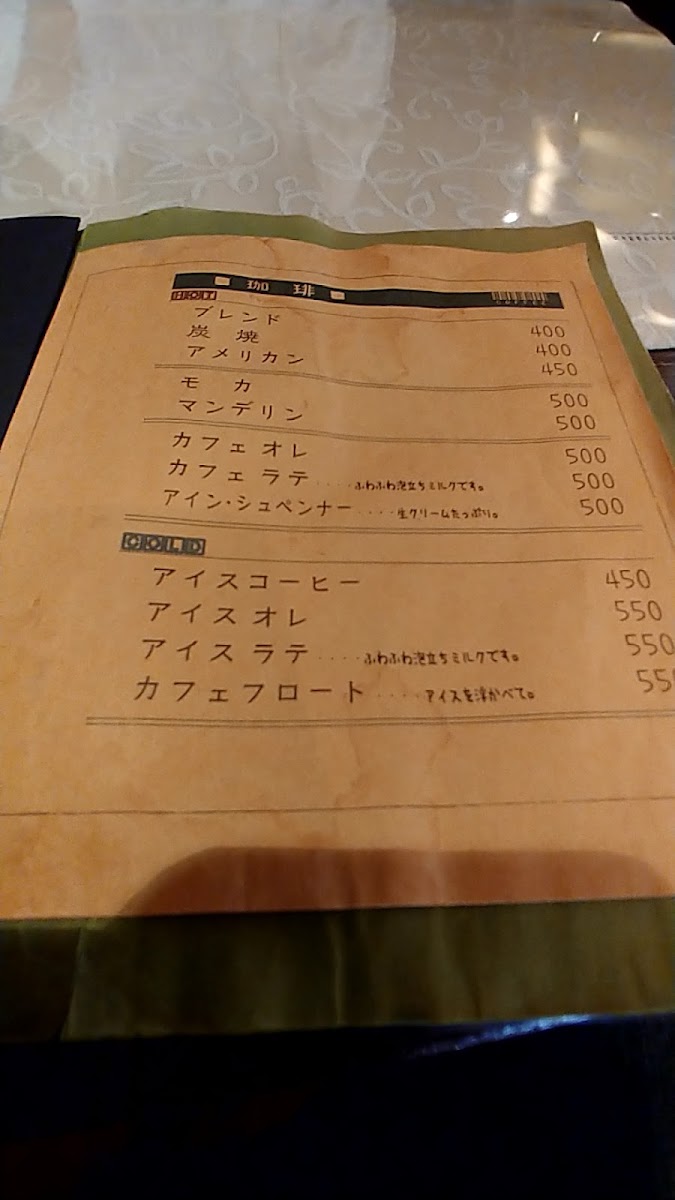 珈琲 COFFEE
HOT
ブレンド 400
炭焼 400
アメリカン 450
モカ 500
マンデリン 500
カフェオレ 500
カフェラテ ····ふわふわ泡立ちミルクです。 500
アイン・シュペンナー ····生クリームたっぷり。 500
COLD
アイスコーヒー 450
アイスオレ 550
アイスラテ ····ふわふわ泡立ちミルクです。 550
カフェフロート ····アイスを浮かべて。 550